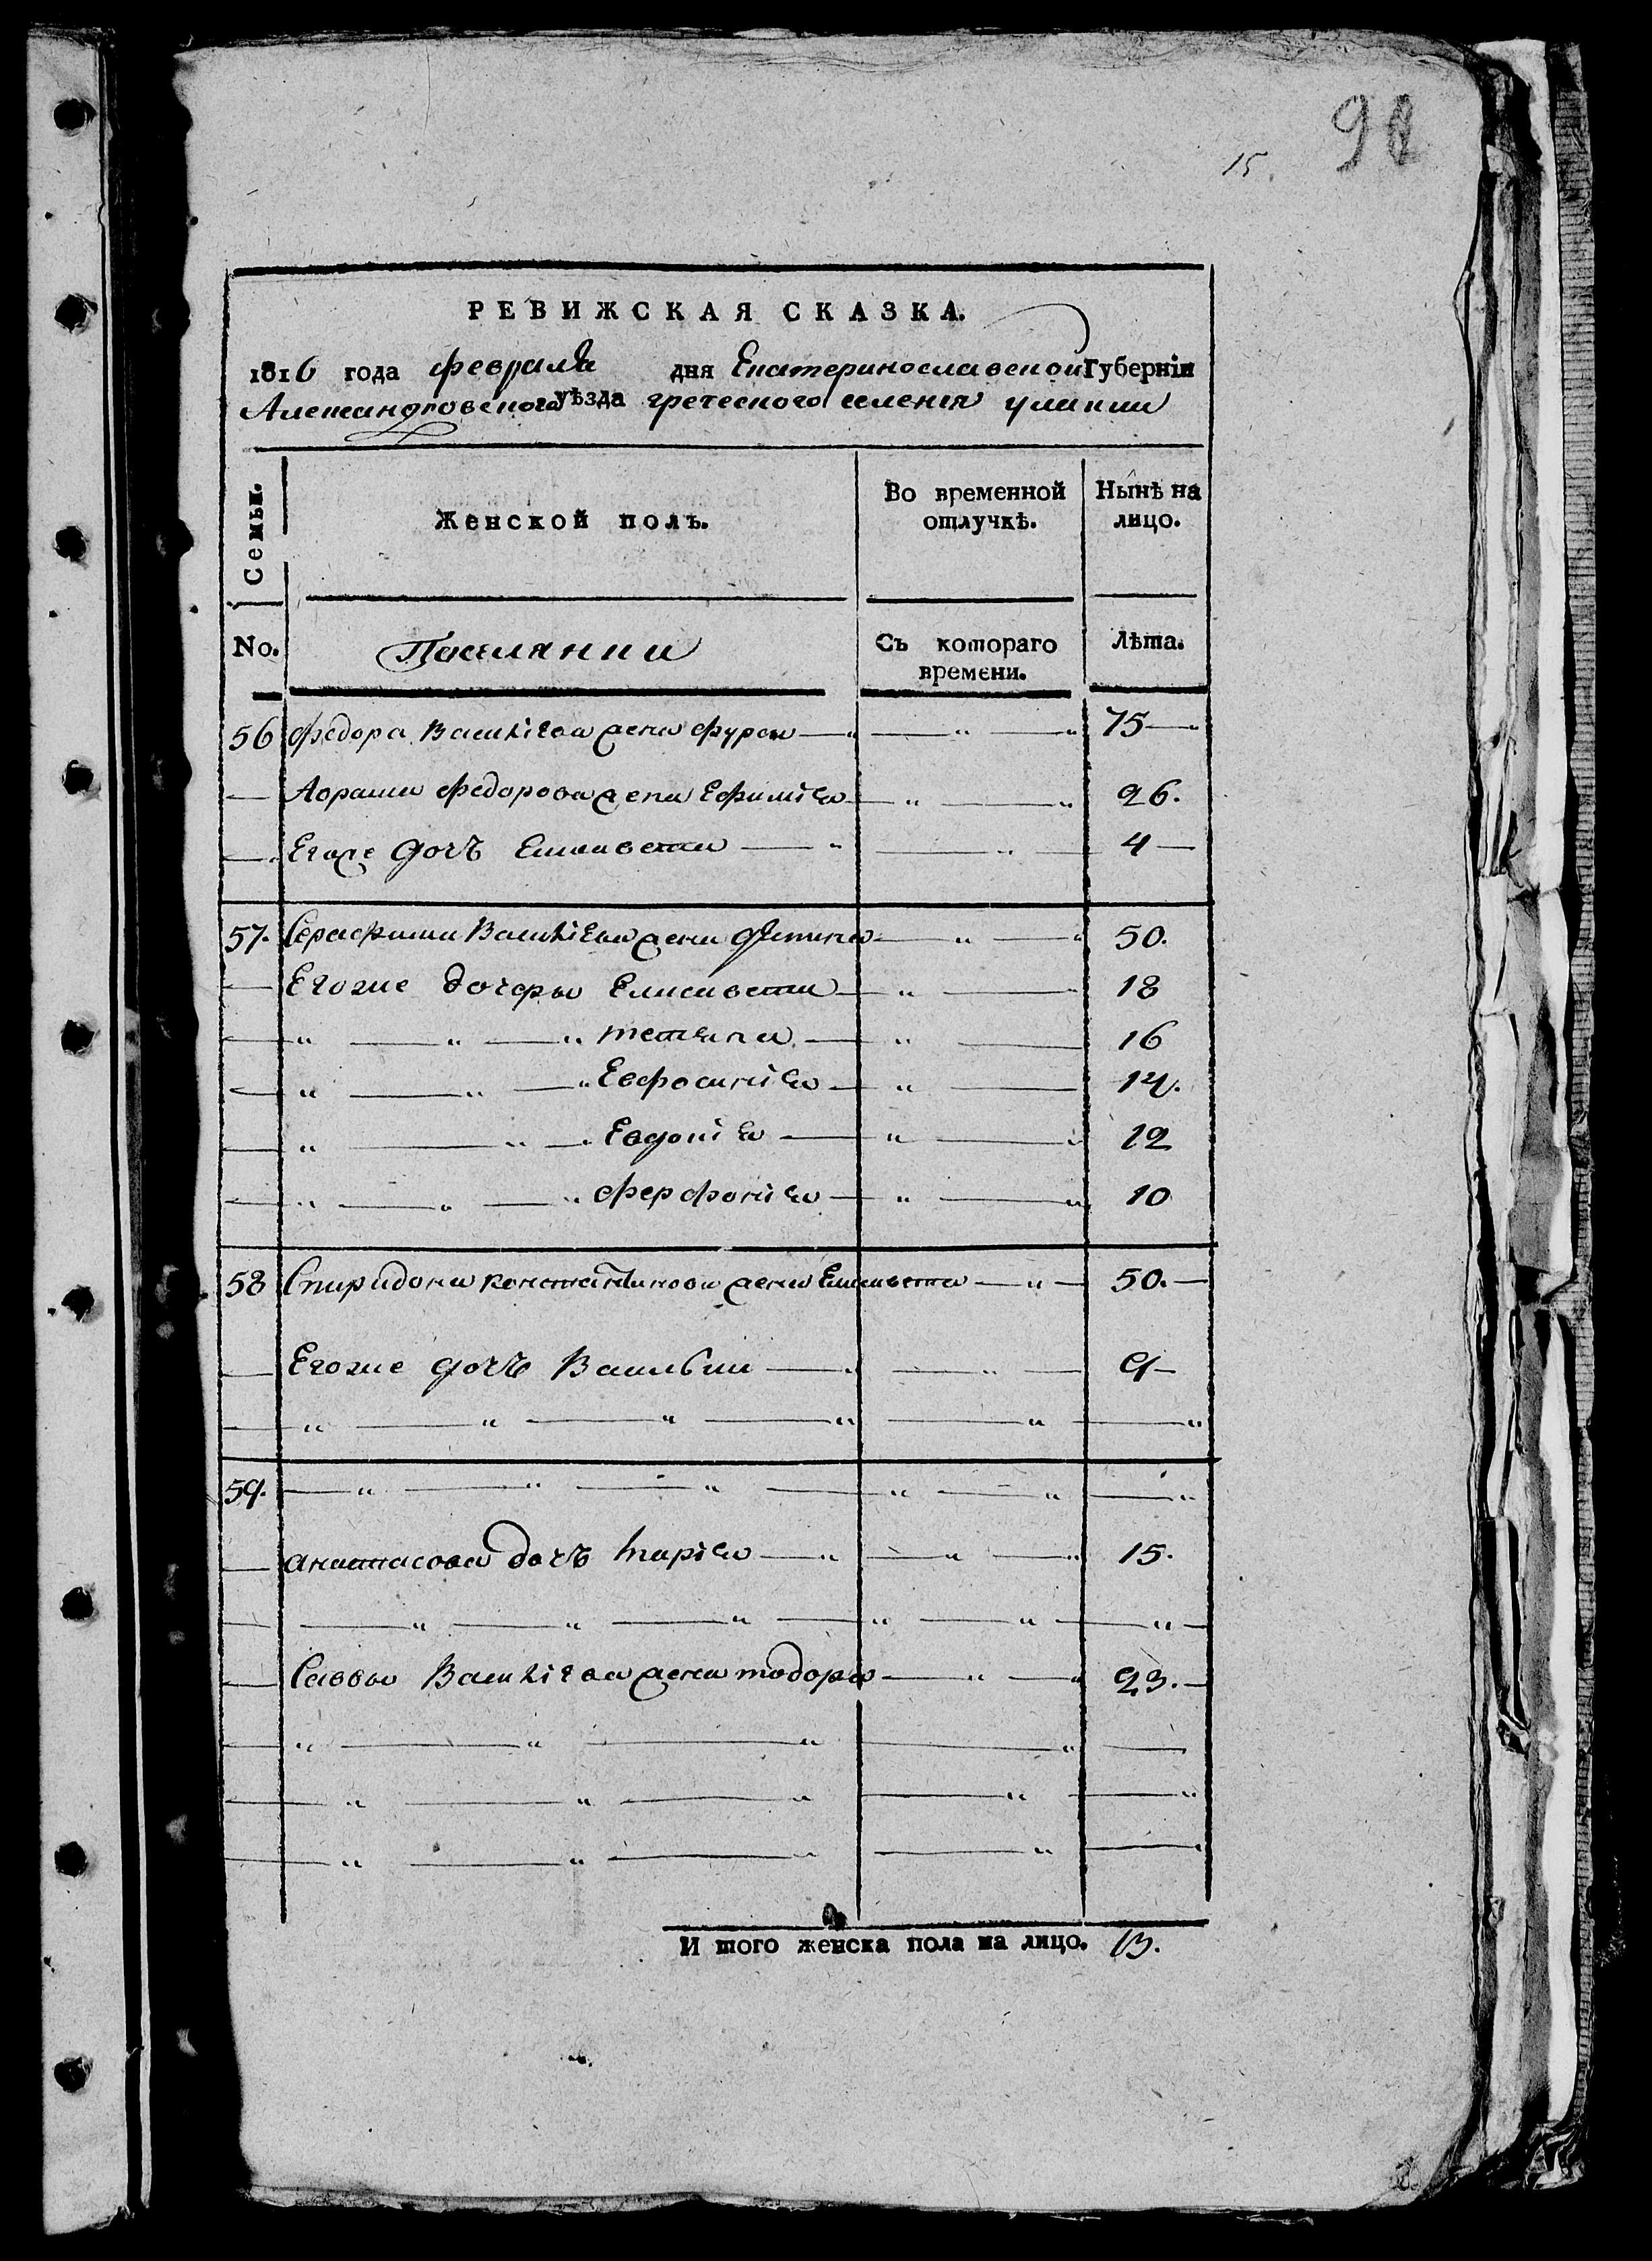 15.
РЕВИЖСКАЯ СКАЗКА.
1816 года февраля дня Екатеринославской Губерніи
Александровского уѣзда греческого селенія улаклы
Семьи.
Женской полъ.
Во временной отлучкѣ.
Нынѣ на лицо.
No.
Поселянки
Съ котораго времени.
Лѣта.
56 Федора Василіева жена — „ — „ — „ 75 — „
— федорова жена Ефимія — „ — „ 26.
— Егоже дочь Елисавета — „ — „ — 4 —
57. Серафима Василіева жена — „ — „ 50.
— Егоже дочеры Елисавета — „ — 18
— „ — „ — „ — „ — 16
— „ — „ — „ Евфосинія — „ — 14.
— „ — „ — „ Евдокія — „ — 12
— „ — „ — „ — „ — „ 10
58 Спиридона константинова жена Елисавета — „ — 50. —
— Егоже дочь Василыки — „ — „ — 9 —
— „ — „ — „ — „ — „ — „
59. — „ — „ — „ — „ — „ — „
— анастасова дочь Марія — „ — „ — „ 15.
— — „ — „ — „ — „ — „ — „ —
— Саввы Василіева жена тодора — „ — „ 23. —
— „ — „ — „ — „ —
— „ — „ — „ — „ — „
— „ — „ — „ — „ — „
И того женска пола на лицо. 13.